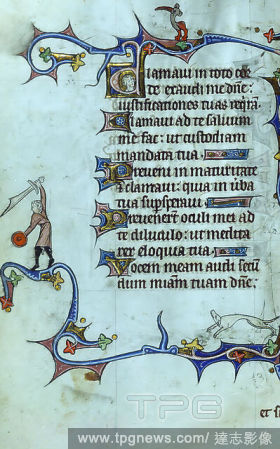 Clamaui in toto cor
de exaudi me dñe:
iustificationes tuas reqrã.
Clamaui ad te saluum
me fac: ut custodiam
mandata tua.
Preueni in maturitate
⁊ clamaui: quia in ũba
tua supsperaui.
Preuenert oculi mei ad
te diluculo: ut medita
rer eloquia tua.
Uocem meam audi scdm
diam miãm tuam dñe:
et si
TPG
www.tpgnews.com/ 達志影像